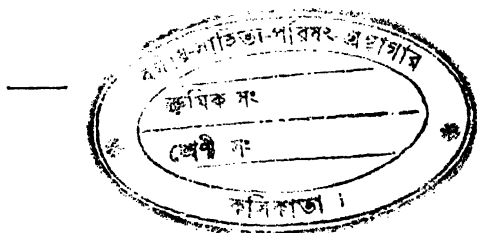 বঙ্গীয়-সাহিত্য-পরিষৎ গ্রন্থাগার
ক্রমিক নং
শ্রেণী নং
কলিকাতা ।